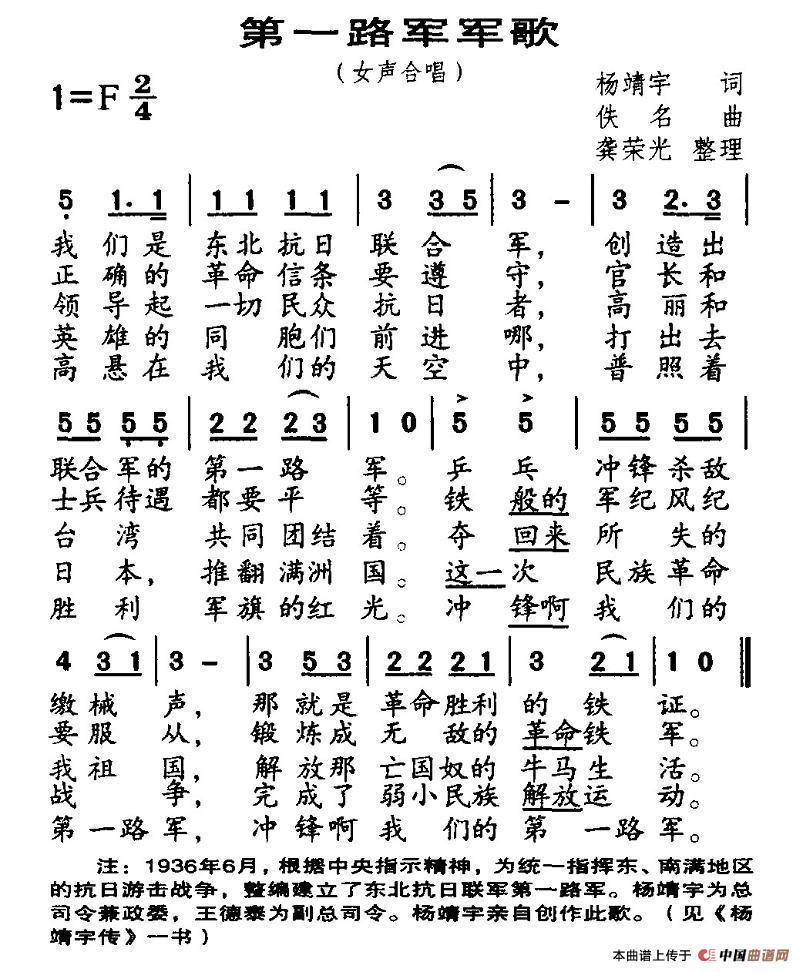 第一路军军歌
（女声合唱）
1=F 2/4
杨靖宇 词
佚名 曲
龚荣光 整理
5 1. 1 | 1 1 1 1 | 3 3 5 | 3 - | 3 2. 3
我们是东北抗日联合军，创造出
正确的革命信条要遵守，官长和
领导起一切民众抗日者，高丽和
英雄的同胞们前进哪，打出去
高悬在我们的天空中，普照着
5 5 5 5 | 2 2 2 3 | 1 0 | 5 5 | 5 5 5 5
联合军的第一路军。乒乓冲锋杀敌
士兵待遇都要平等。铁般的军纪风纪
台湾共同团结着。夺回来所失的
日本，推翻满洲国。这一次民族革命
胜利军旗的红光。冲锋啊我们的
4 3 1 | 3 - | 3 5 3 | 2 2 2 1 | 3 2 1 | 1 0
缴械声，那就是革命胜利的铁证。
要服从，锻炼成无敌的革命铁军。
我祖国，解放那亡国奴的牛马生活。
战争，完成了弱小民族解放运动。
第一路军，冲锋啊我们的第一路军。
注：1936年6月，根据中央指示精神，为统一指挥东、南满地区
的抗日游击战争，整编建立了东北抗日联军第一路军。杨靖宇为总
司令兼政委，王德泰为副总司令。杨靖宇亲自创作此歌。（见《杨
靖宇传》一书）
本曲谱上传于 中国曲谱网